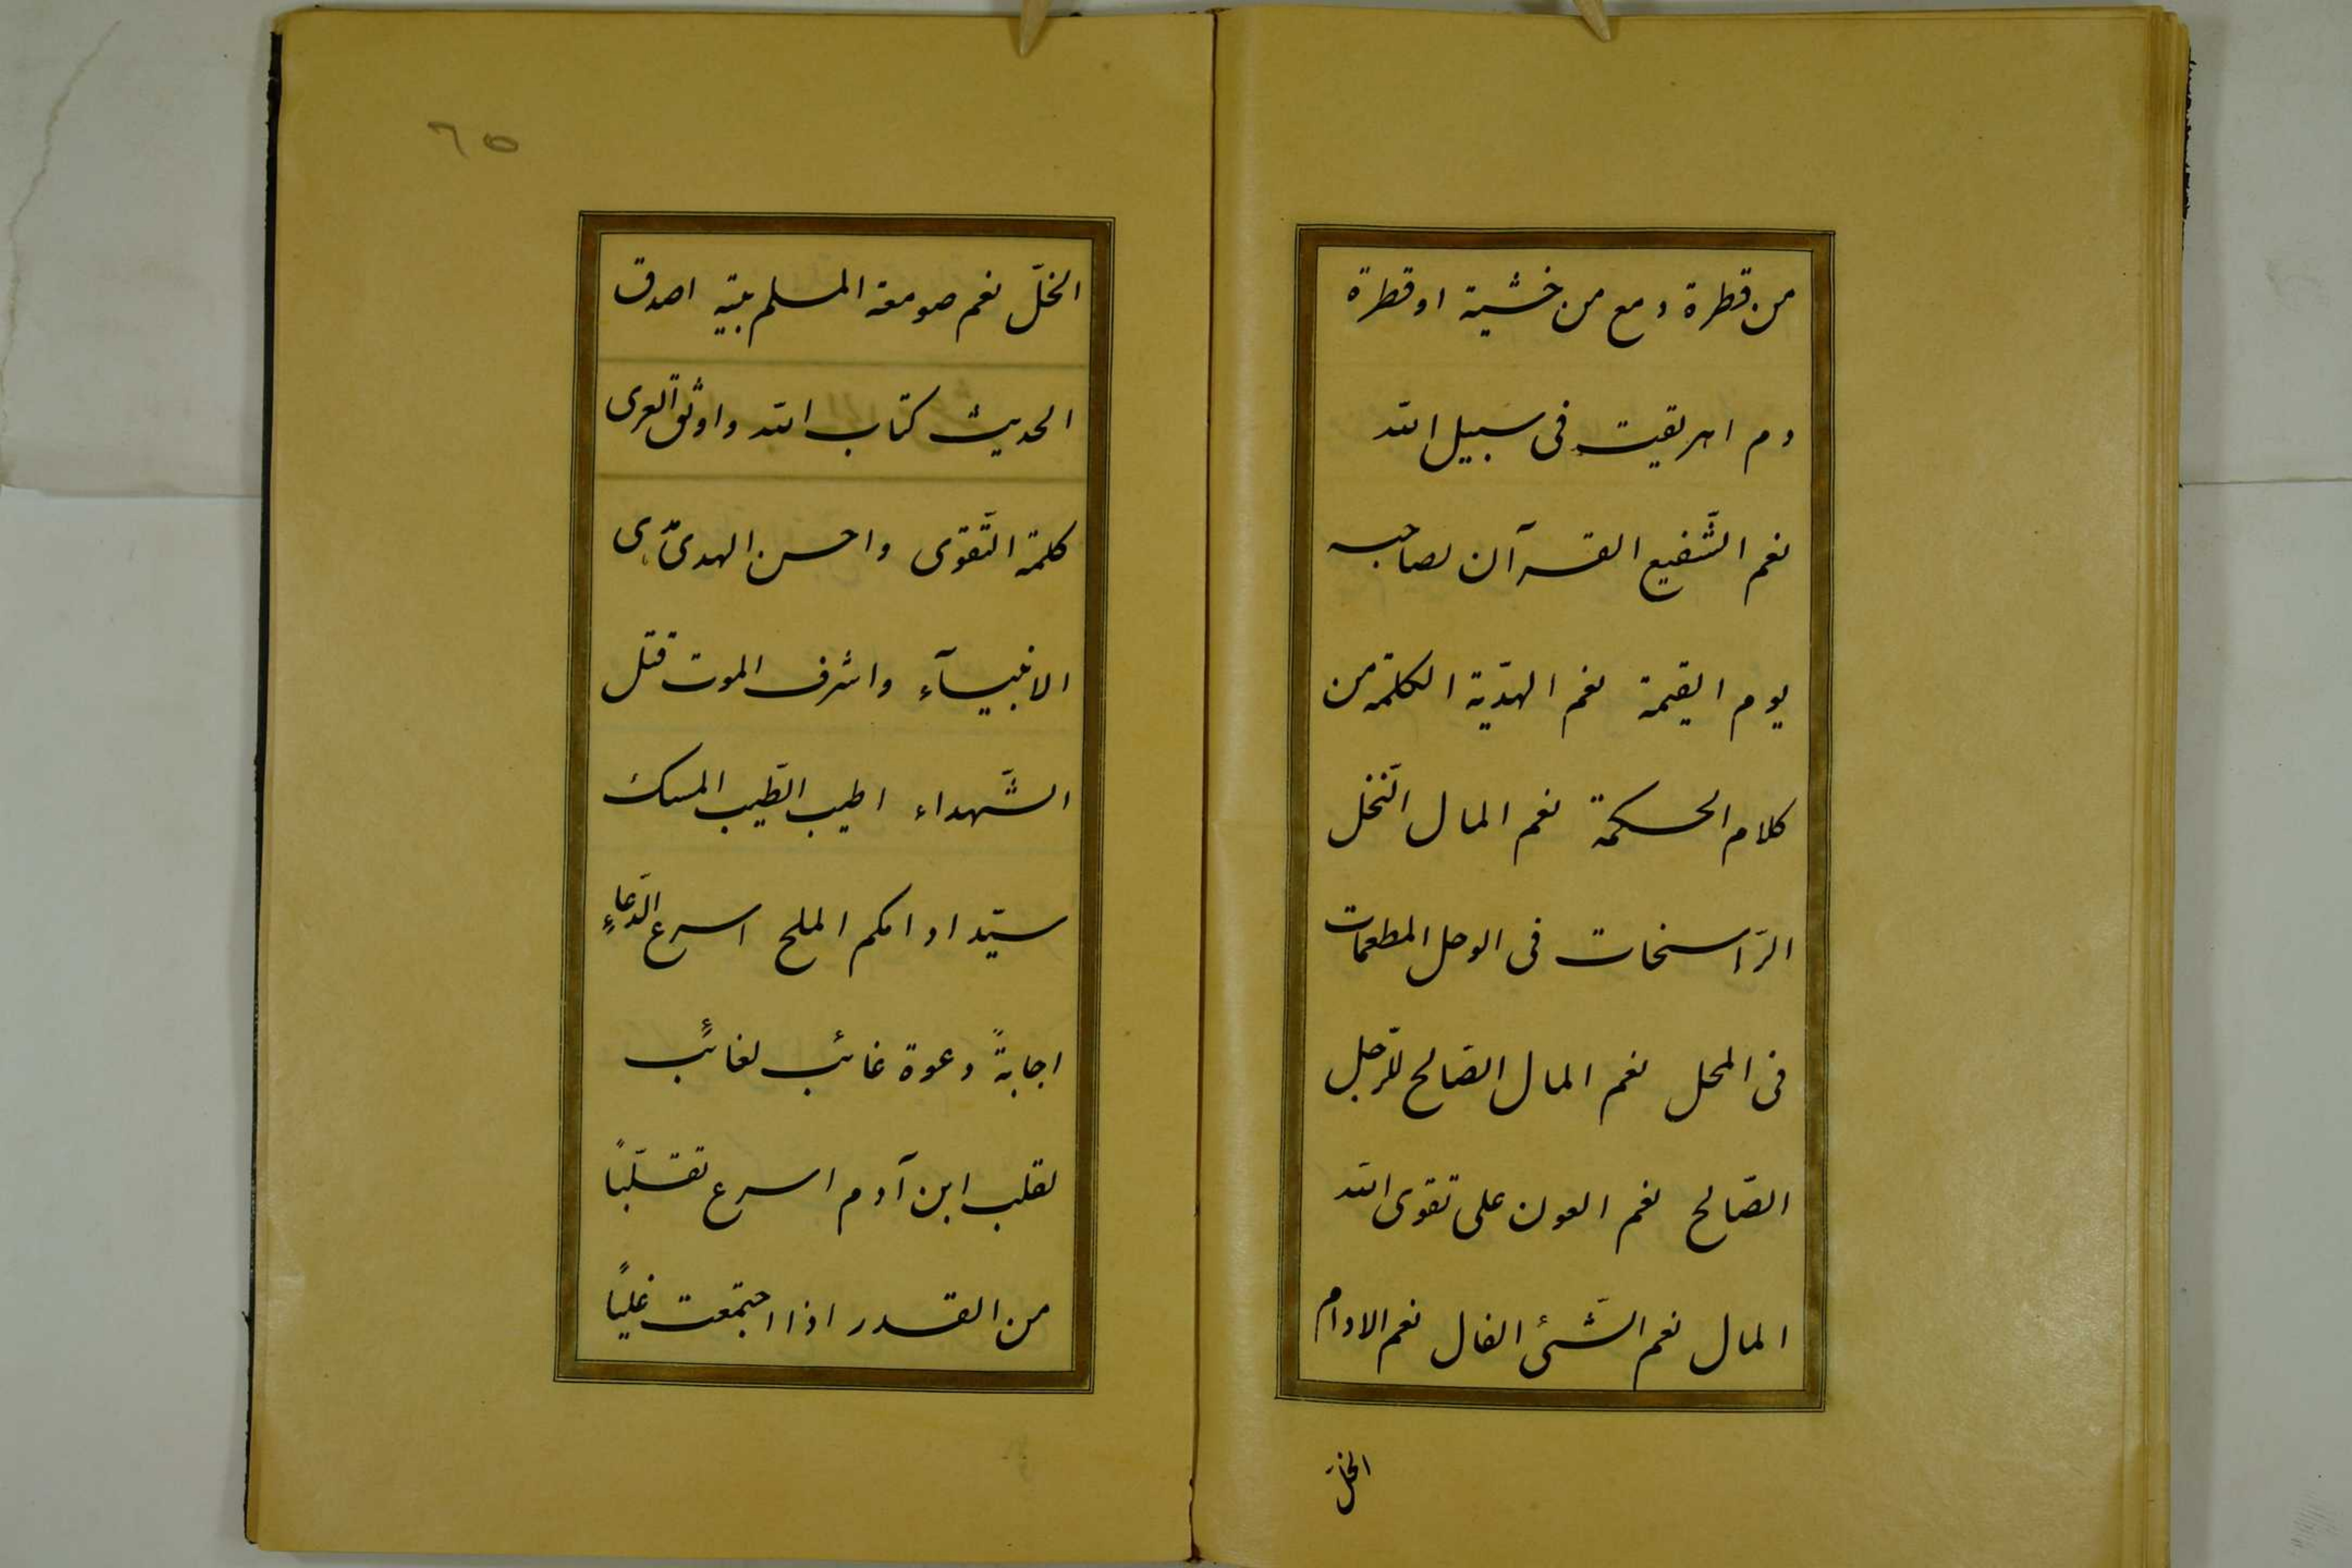 من قطرة دمع من خشية او قطرة
دم اهريقت فى سبيل الله
نعم الشّفيع القرآن لصاحبه
يوم القيمة نعم الهديّة الكلمة من
كلام الحكمة نعم المال النّخل
الرّاسخات فى الوحل المطعمات
فى المحل نعم المال الصّالح للرّجل
الصّالح نعم العون على تقوى الله
المال نعم الشّئ الفال نعم الادام
الخلّ
٦٥
الخلّ نعم صومعة المسلم بيته اصدق
الحديث كتاب الله واوثق العرى
كلمة التّقوى واحسن الهدى هدى
الانبيآء واشرف الموت قتل
الشّهداء اطيب الطّيب المسك
سيّد ادامكم الملح اسرع الدّعاء
اجابةً دعوة غائب لغائب
لقلب ابن آدم اسرع تقلّبًا
من القدر اذا اجتمعت غليًا